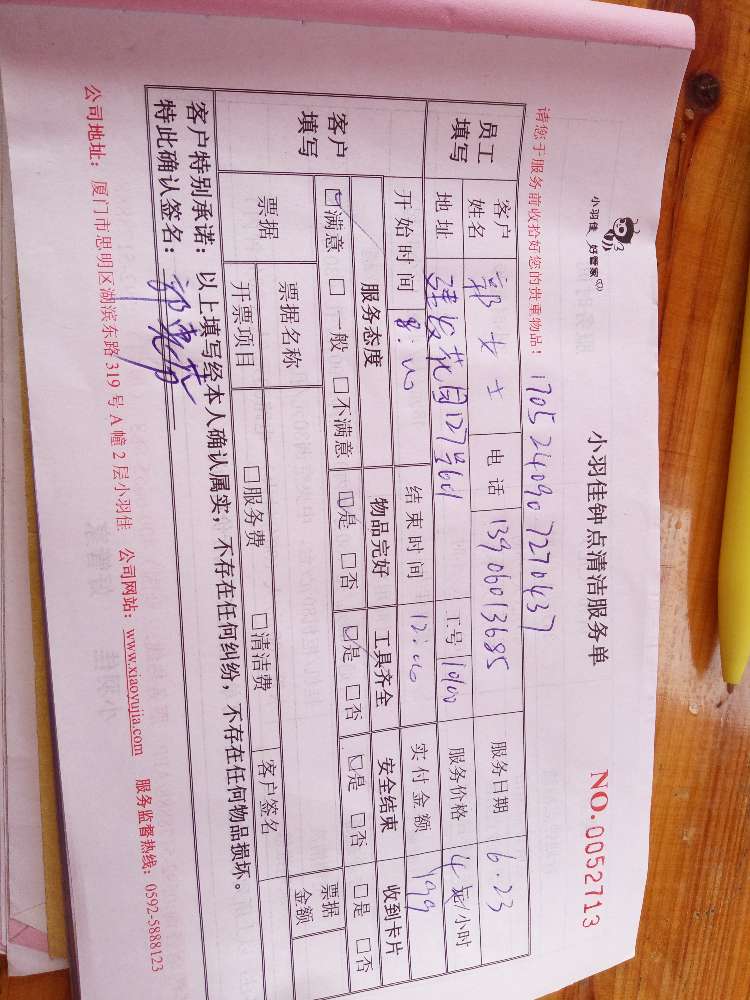 小羽佳 好管家
小羽佳钟点清洁服务单
NO.0052713
请您于服务前收拾好您的贵重物品！
1705240907270437
员工填写 客户姓名 郭女士 电话 13906013685 服务日期 6.23
地址 建发花园127号601 工号 服务价格 4 /小时
客户填写 开始时间 8:00 结束时间 12:00 实付金额 199
服务态度 物品完好 工具齐全 安全结束 收到卡片
☑满意 □一般 □不满意 ☑是 □否 ☑是 □否 ☑是 □否 □是 □否
票据 票据名称 票据金额
开票项目 □服务费 □清洁费 客户签名
客户特别承诺：以上填写经本人确认属实，不存在任何纠纷，不存在任何物品损坏。
特此确认签名：
公司地址：厦门市思明区湖滨东路319号A幢2层小羽佳 公司网站：www.xiaoyujia.com 服务监督热线：0592-5888123